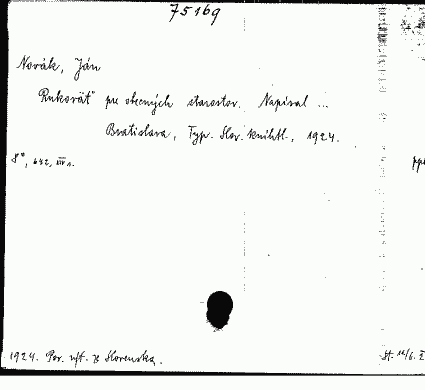 75169
Novák, Ján
Rukoväť pre obecných starostov. Napísal ...
Bratislava, Typ. Slov. kníhtl., 1924.
8°, 642, XIV s.
1924. z Slovenska.
St.